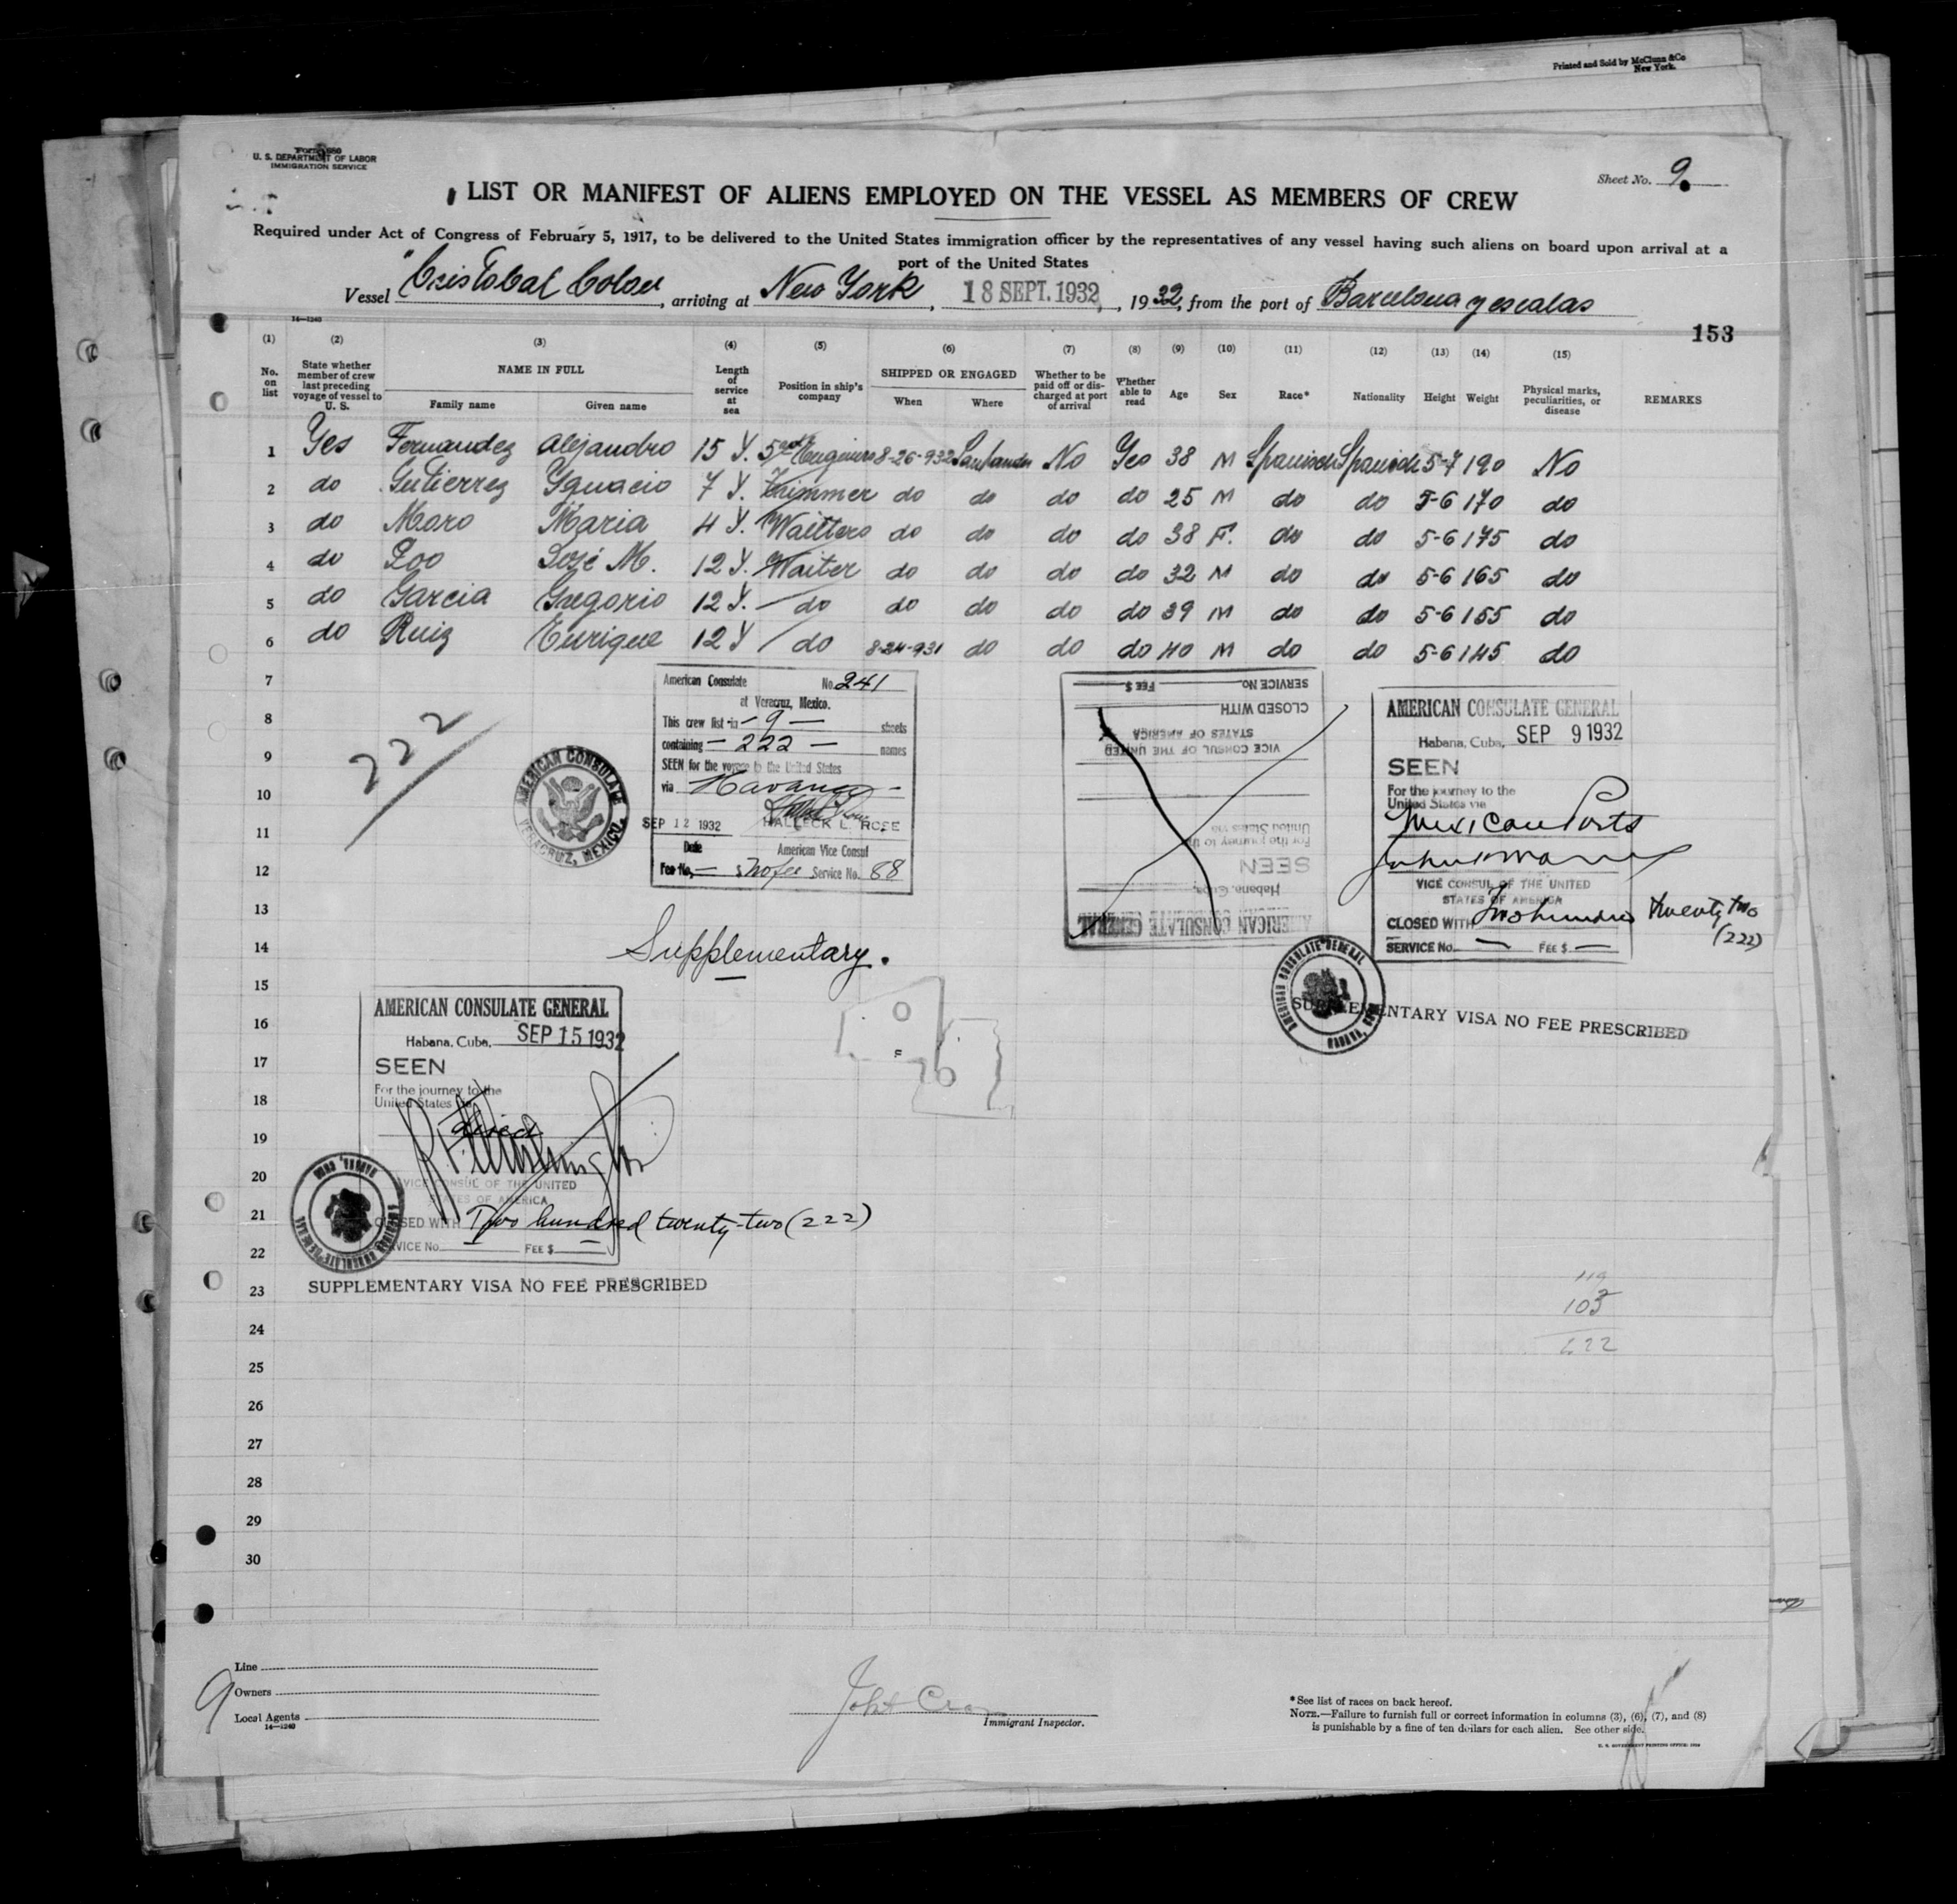 Printed and Sold by McClunn & Co
New York.
Form 680
U. S. DEPARTMENT OF LABOR
IMMIGRATION SERVICE
Sheet No. 9
LIST OR MANIFEST OF ALIENS EMPLOYED ON THE VESSEL AS MEMBERS OF CREW
Required under Act of Congress of February 5, 1917, to be delivered to the United States immigration officer by the representatives of any vessel having such aliens on board upon arrival at a
port of the United States
Vessel "Cristobal Colon, arriving at New York, 18 SEPT. 1932, 1932, from the port of Barcelona y escalas
14—1240
153
(1) (2) (3) (4) (5) (6) (7) (8) (9) (10) (11) (12) (13) (14) (15)
No. on list State whether member of crew last preceding voyage of vessel to U. S. NAME IN FULL Family name Given name Length of service at sea Position in ship's company SHIPPED OR ENGAGED When Where Whether to be paid off or discharged at port of arrival Whether able to read Age Sex Race* Nationality Height Weight Physical marks, peculiarities, or disease REMARKS
1 Yes Fernandez Alejandro 15 Y. 5 Engineer 8-26-932 Santander No Yes 38 M Spanish Spanish 5-7 190 No
2 do Gutierrez Ygnacio 7 Y. Trimmer do do do do 25 M do do 5-6 170 do
3 do Moro Maria 4 Y. Waitters do do do do 38 F. do do 5-6 175 do
4 do Poo José M. 12 Y. Waiter do do do do 32 M do do 5-6 165 do
5 do Garcia Gregorio 12 Y. do do do do do 39 M do do 5-6 155 do
6 do Ruiz Enrique 12 Y do 8-24-931 do do do 40 M do do 5-6 145 do
7
8
9
10
11
12
13
14
15
16
17
18
19
20
21
22
23
24
25
26
27
28
29
30
222
American Consulate No. 241
at Veracruz, Mexico.
This crew list in - 9 - sheets
containing - 222 - names
SEEN for the voyage to the United States
via Havana -
SEP 12 1932 HALLECK L. ROSE
Date American Vice Consul
Fee No. - $ No fee Service No. 88
AMERICAN CONSULATE
VERACRUZ, MEXICO.
AMERICAN CONSULATE GENERAL
Habana, Cuba,
SEEN
For the journey to the
United States via
VICE CONSUL OF THE UNITED
STATES OF AMERICA
CLOSED WITH
SERVICE No. FEE $
AMERICAN CONSULATE GENERAL
Habana, Cuba, SEP 9 1932
SEEN
For the journey to the
United States via
Mexican Ports
VICE CONSUL OF THE UNITED
STATES OF AMERICA
CLOSED WITH Two hundred twenty two
(222)
SERVICE No. — FEE $ —
AMERICAN CONSULATE GENERAL HABANA, CUBA
SUPPLEMENTARY VISA NO FEE PRESCRIBED
Supplementary.
AMERICAN CONSULATE GENERAL
Habana, Cuba, SEP 15 1932
SEEN
For the journey to the
United States
direct
VICE CONSUL OF THE UNITED
STATES OF AMERICA
CLOSED WITH Two hundred twenty-two (222)
SERVICE No. FEE $
AMERICAN CONSULATE GENERAL HABANA, CUBA
SUPPLEMENTARY VISA NO FEE PRESCRIBED
119
103
222
9
Line
Owners
Local Agents
14—1240
John
Immigrant Inspector.
*See list of races on back hereof.
NOTE.—Failure to furnish full or correct information in columns (3), (6), (7), and (8)
is punishable by a fine of ten dollars for each alien. See other side.
U. S. GOVERNMENT PRINTING OFFICE: